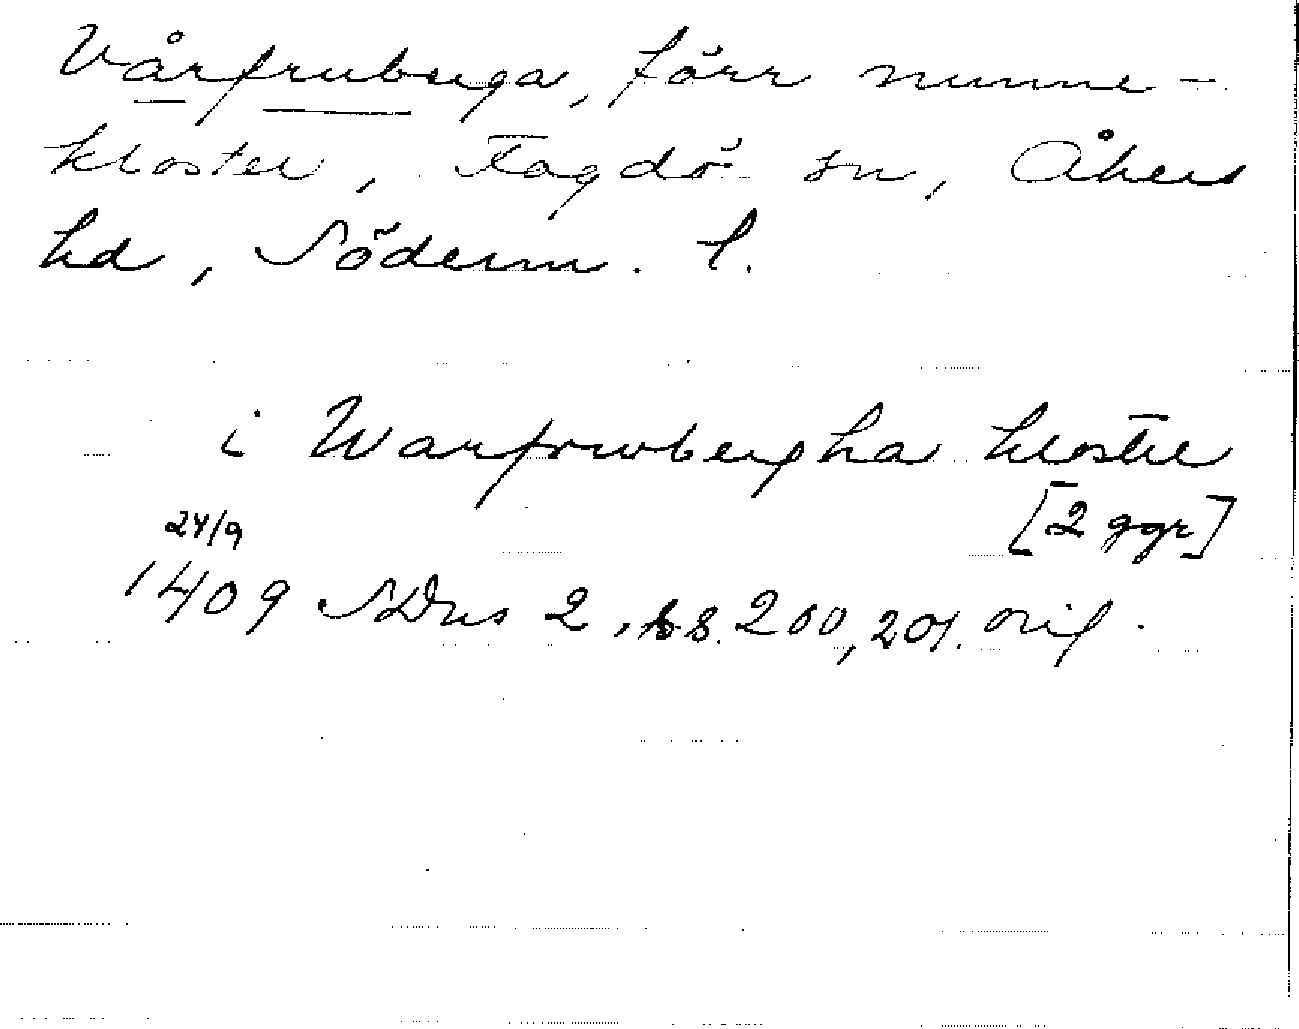 Vårfruberga, förr nunne-
kloster, Fogdö sn, Åkers
hd, Söderm. l.
i Warfrwbergha kloster
[2 ggr]
24/9
1409 SDns 2, s. 200, 201. orig.